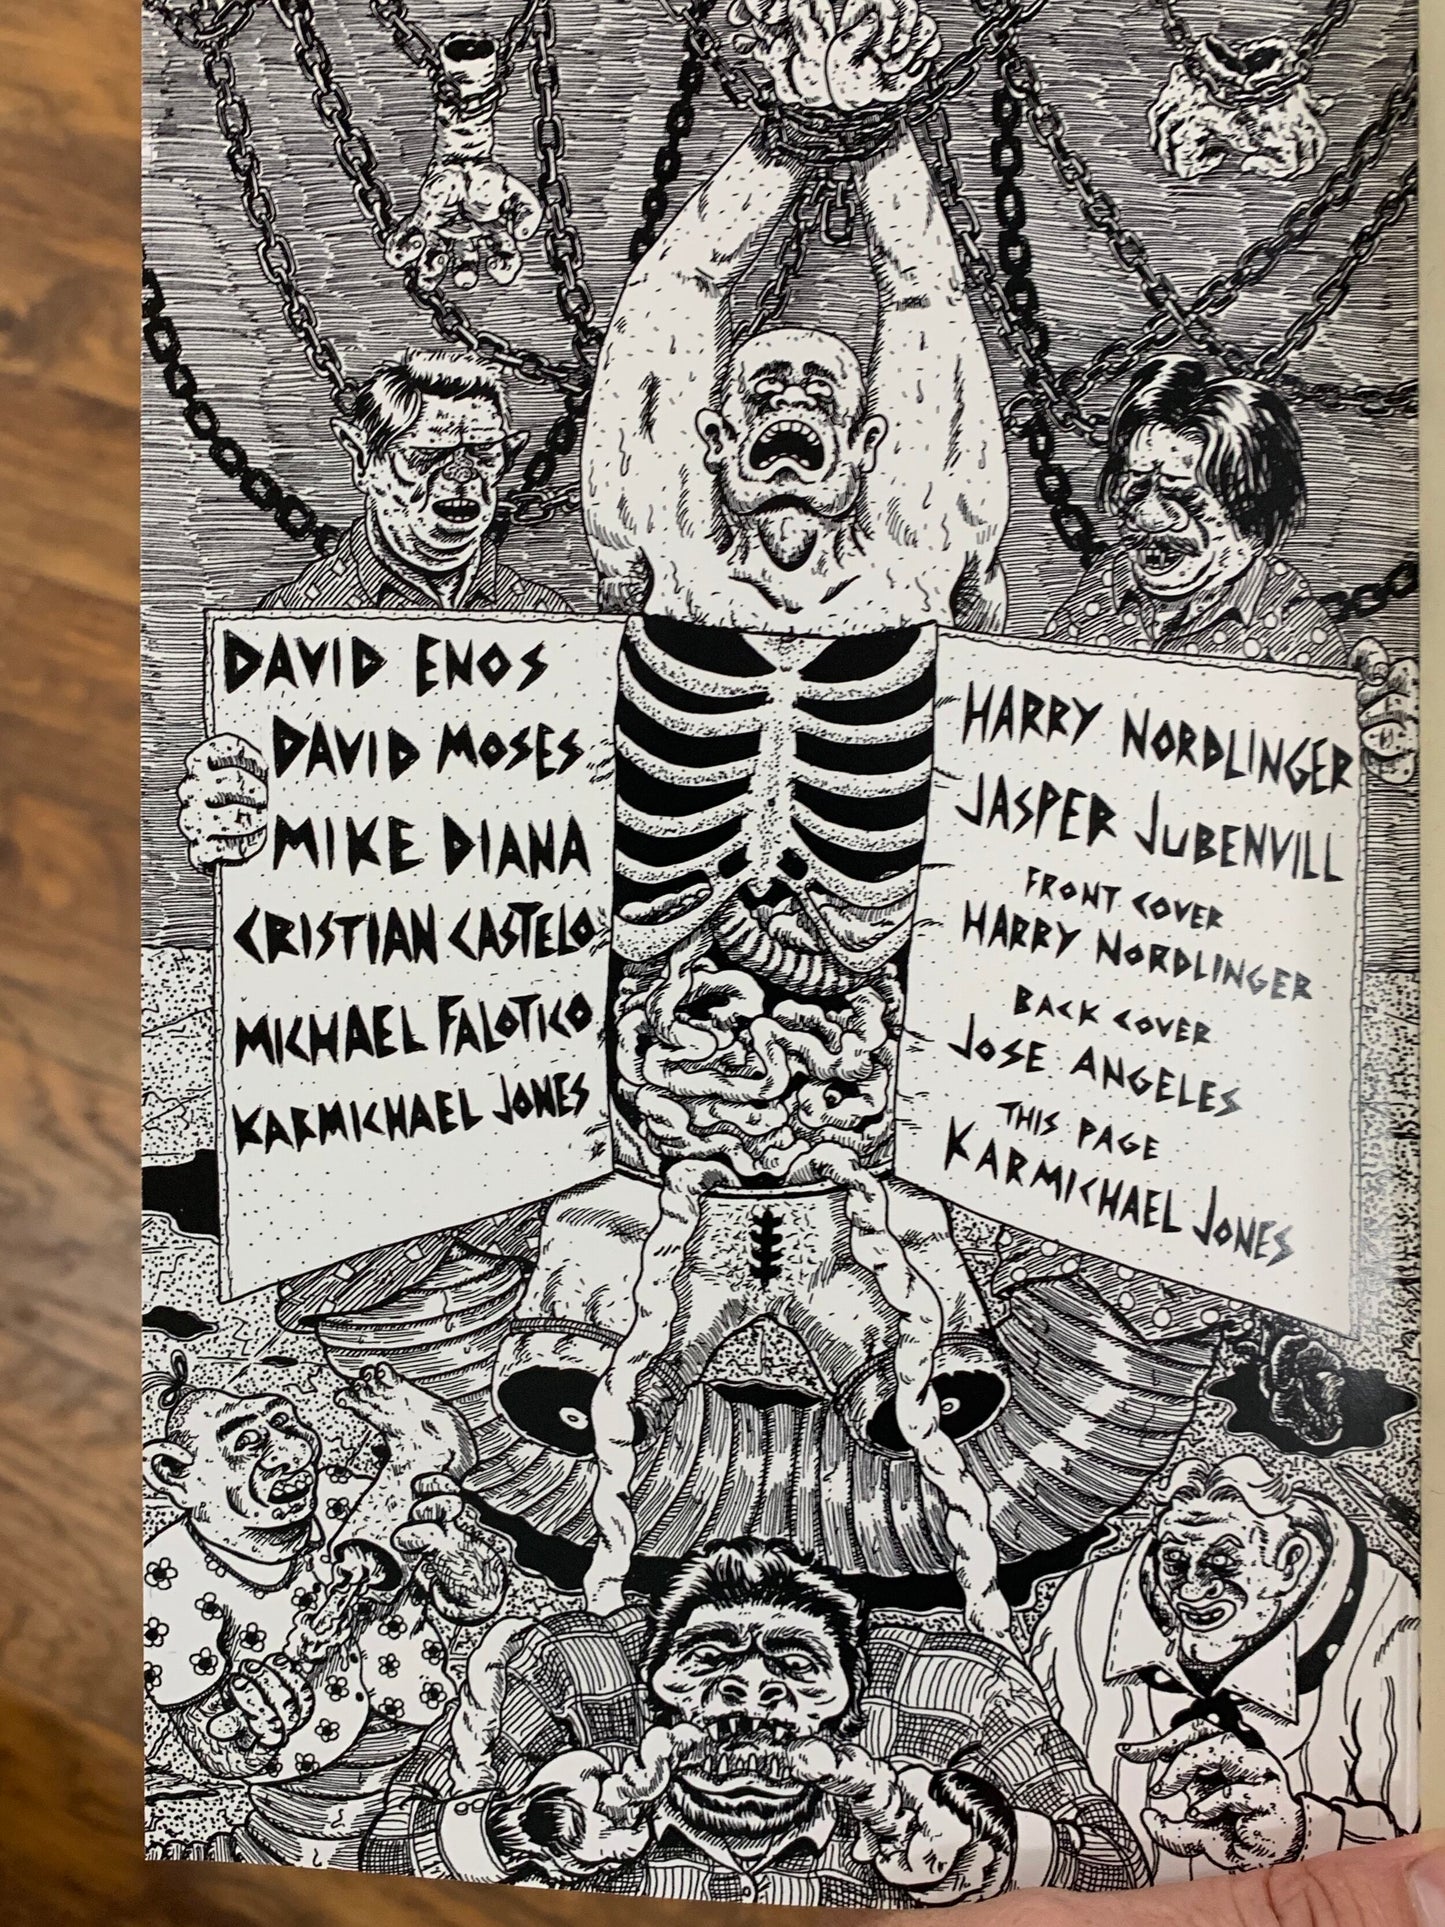 DAVID ENOS
DAVID MOSES
MIKE DIANA
CRISTIAN CASTELO
MICHAEL FALOTICO
KARMICHAEL JONES
HARRY NORDLINGER
JASPER JUBENVILL
FRONT COVER
HARRY NORDLINGER
BACK COVER
JOSE ANGELES
THIS PAGE
KARMICHAEL JONES